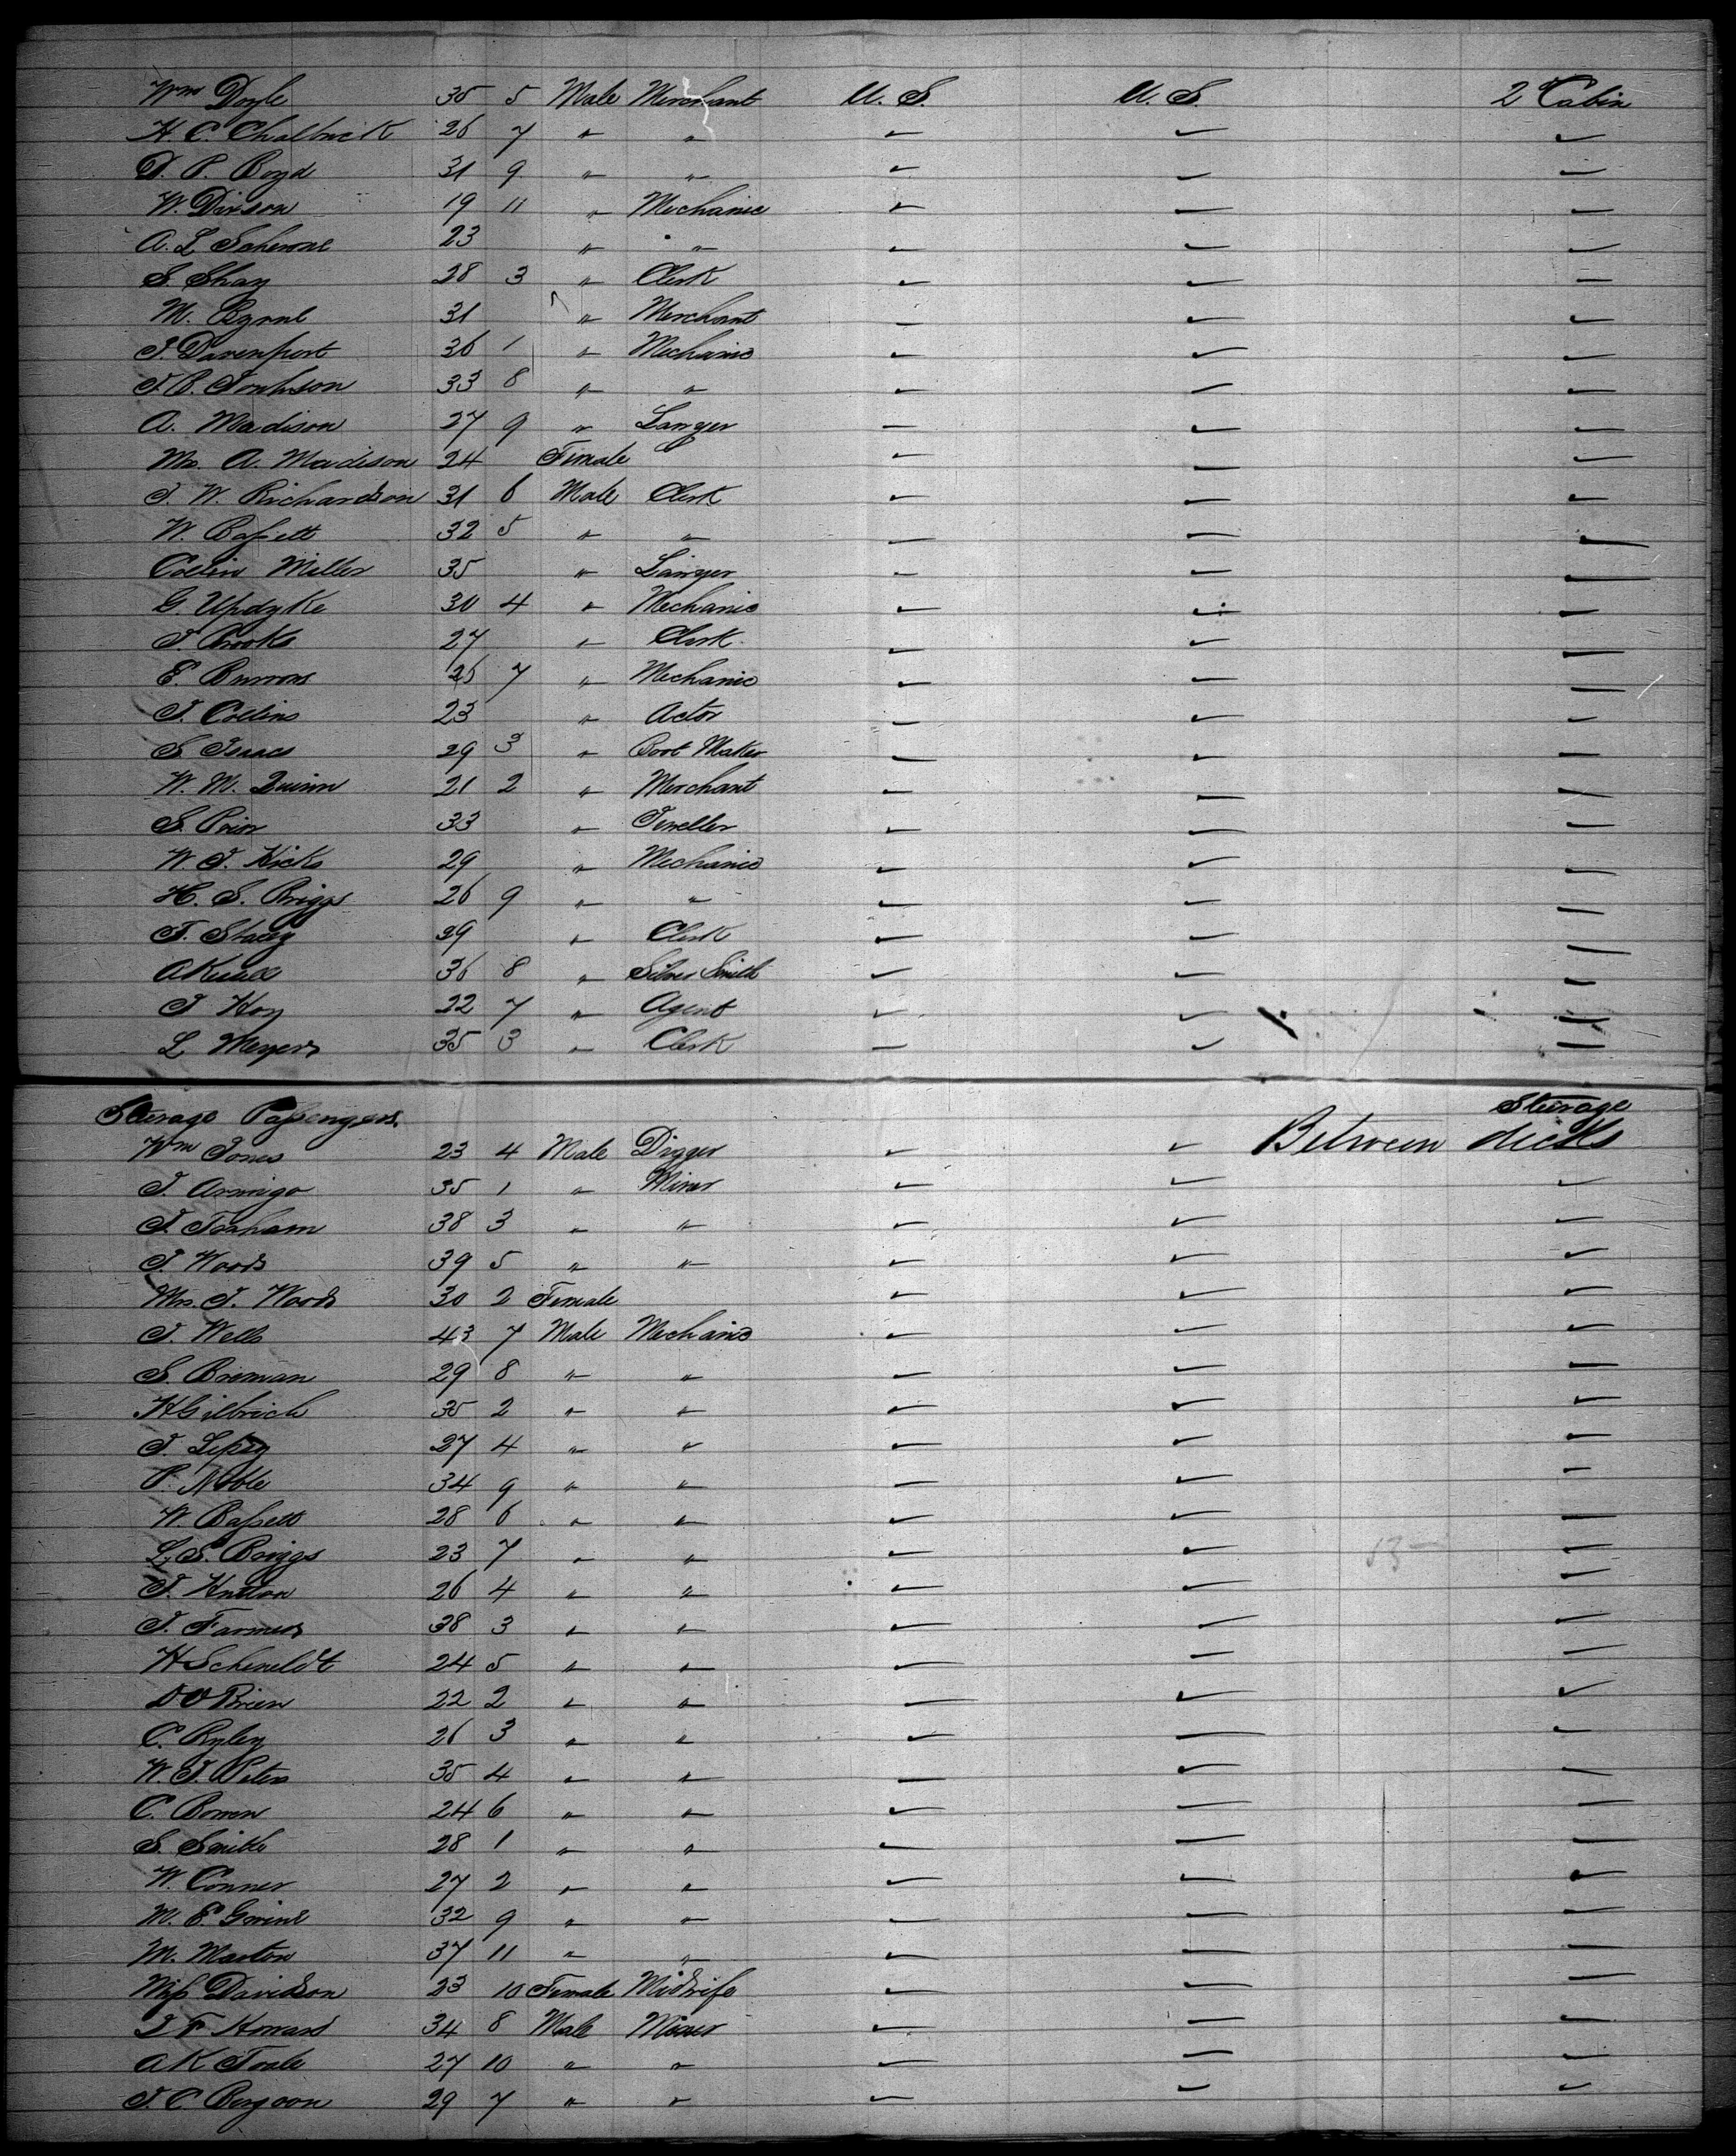 Wm Doyle 35 5 Male Merchant U. S. U. S. 2d Cabin
H. C. Chalbrick 26 7 " "
D. P. Boyd 31 9 " "
W. Dixson 19 11 " Mechanic
A. L. 23 " "
S. Shay 28 3 " Clerk
M. Byrne 31 " Merchant
J. Davenport 36 1 " Mechanic
J. B. 33 8 " "
A. Madison 27 9 " Lawyer
Mrs. A. Madison 24 Female
J. W. Richardson 31 6 Male Clerk
W. Bassett 32 5 " "
Collin Miller 35 " Lawyer
G. Updyke 30 4 " Mechanic
J. Brooks 27 " Clerk
E. Burrows 25 7 " Mechanic
J. Collins 23 " Actor
S. Isaacs 29 3 " Boot Maker
W. M. Quinn 21 2 " Merchant
S. 33 " Jeweller
W. J. Hicks 29 " Mechanic
H. S. Briggs 26 9 " "
T. Stacey 39 " Clerk
A 36 8 " Silver Smith
J Hoy 22 7 " Agent
L Meyers 35 3 " Clerk
Steerage Passengers. Steerage
Wm Jones 23 4 Male Digger Between decks
J. Armigo 35 1 " Miner
J. 38 3 " "
J. Woods 39 5 " "
Mrs. J. Woods 30 2 Female
J. Wells 43 7 Male Mechanic
S. Breman 29 8 " "
H Gilbrich 35 2 " "
J. Lipsey 27 4 " "
P. Noble 34 9 " "
W. Bassett 28 6 " "
L. S. Briggs 23 7 " "
J. Hutton 26 4 " "
J. Farmers 38 3 " "
H Scheneldt 24 5 " "
D O Brien 22 2 " "
C. Ryley 26 3 " "
W. J. Peters 35 4 " "
C. Bowen 24 6 " "
S. Smith 28 1 " "
W. Conner 27 2 " "
M. E. 32 9 " "
M. Marton 37 11 " "
Miss Davidson 23 10 Female Midwife
J F Howard 34 8 Male Miner
A K Toale 27 10 " "
J. C. Bergoon 29 7 " "